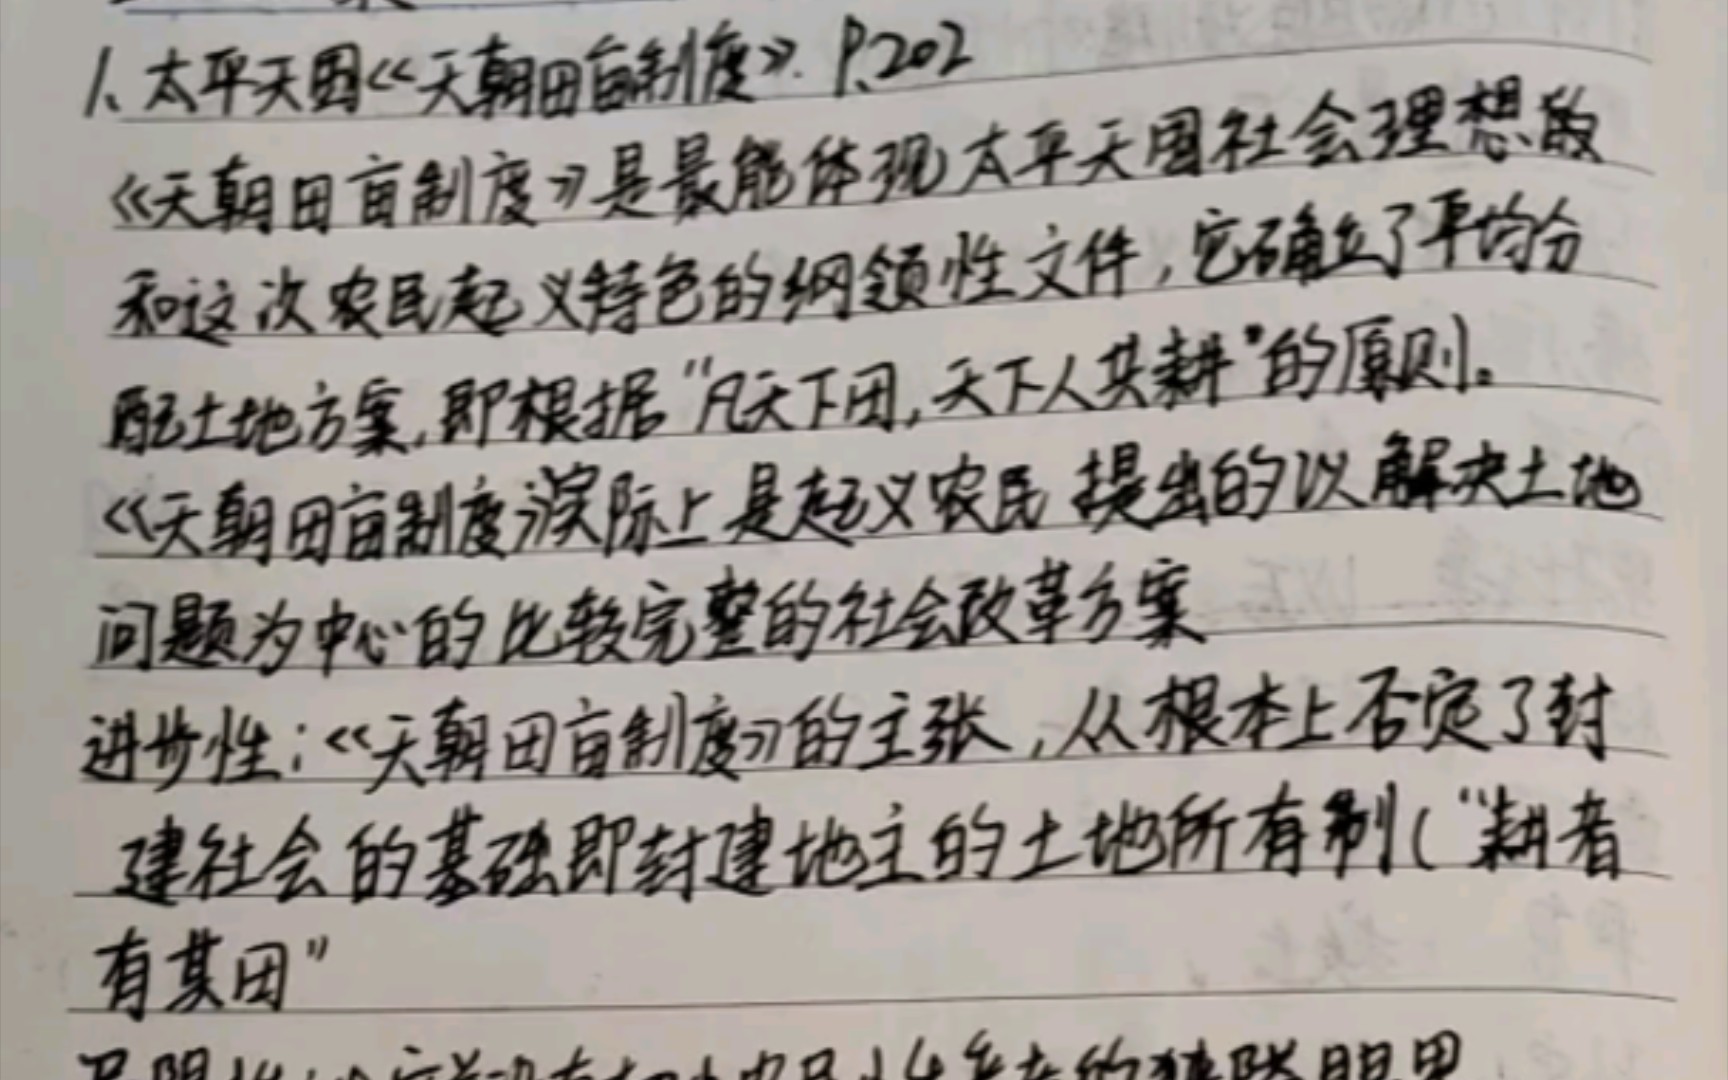 1、太平天国《天朝田亩制度》. P.202
《天朝田亩制度》是最能体现太平天国社会理想的
和这次农民起义特色的纲领性文件，它确立了平均分
配土地方案，即根据“凡天下田，天下人共耕”的原则。
《天朝田亩制度》实际上是起义农民提出的以解决土地
问题为中心的比较完整的社会改革方案
进步性：《天朝田亩制度》的主张，从根本上否定了封
建社会的基础即封建地主的土地所有制（“耕者
有其田”